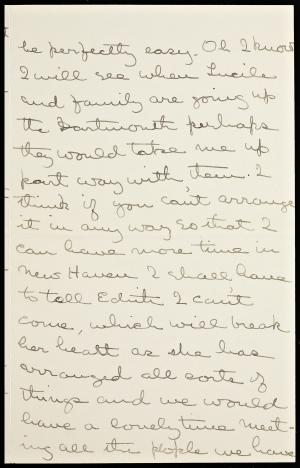 be perfectly easy. Oh I know
I will see when Lucile
and family are going up
to Dartmouth perhaps
they would take me up
part way with them. I
think if you can't arrange
it in any way so that I
can have more time in
New Haven I shall have
to tell Edith I can't
come, which will break
her heart as she has
arranged all sorts of
things and we would
have a lovely time meet-
ing all the people we have